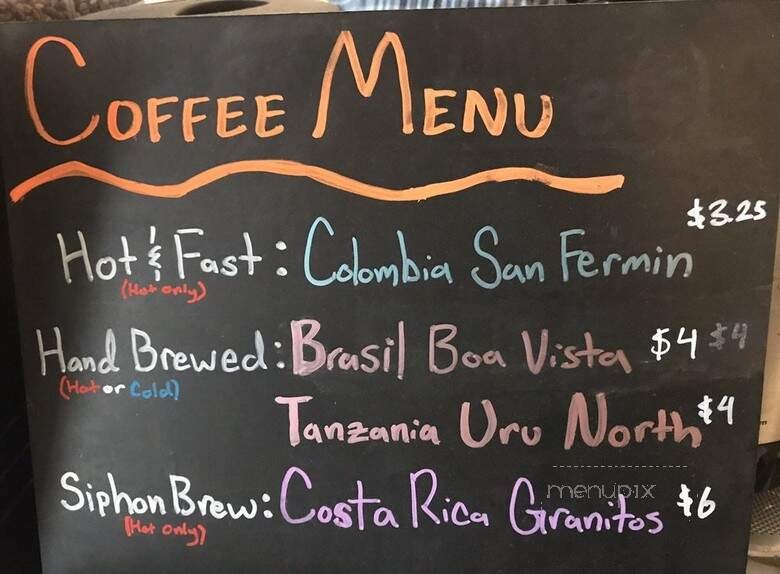 COFFEE MENU
$3.25
Hot & Fast: Colombia San Fermin
(Hot only)
Hand Brewed: Brasil Boa Vista $4 $4
(Hot or Cold)
Tanzania Uru North $4
menupix
Siphon Brew: Costa Rica Granitos $6
(Hot only)